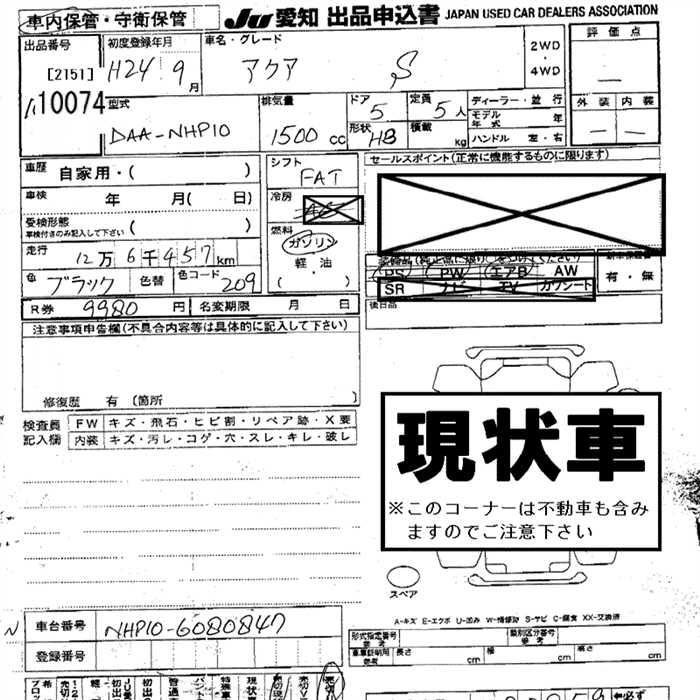 車内保管・守衛保管 JU 愛知 出品申込書 JAPAN USED CAR DEALERS ASSOCIATION
出品番号 初度登録年月 車名・グレード 2WD 評価点
[2151] H24 9月 アクア S 4WD
10074 型式 排気量 ドア 定員 ディーラー・並行 外装 内装
DAA-NHP10 1500cc 5 5人 モデル年式 年
形状 HB 積載 kg ハンドル 左・右
車歴 自家用・( ) シフト FAT セールスポイント(正常に機能するものに限ります)
車検 年 月( 日) 冷房
受検形態 ( )
車検付きのみ記入して下さい
燃料 ガソリン
走行 12万6千457km 軽・油
色 ブラック 色替 色コード 209 ( )
PS PW エアB AW 有・無
SR ナビ TV カワシート
R券 9980円 名変期限 月 日 後日品
注意事項申告欄(不具合内容等は具体的に記入して下さい)
修復歴 有 〔箇所
検査員 FW キズ・飛石・ヒビ割・リペア跡・X要
記入欄 内装 キズ・汚レ・コゲ・穴・スレ・キレ・破レ
現状車
※このコーナーは不動車も含み
ますのでご注意下さい
スペア
A-キズ E-エクボ U-凹み W-補修跡 S-サビ C-腐食 XX-交換済
車台番号 NHP10-6080847
登録番号
型式指定番号 参考 類別区分番号 参考
車庫証明用 参考 長さ cm 幅 cm 高さ cm